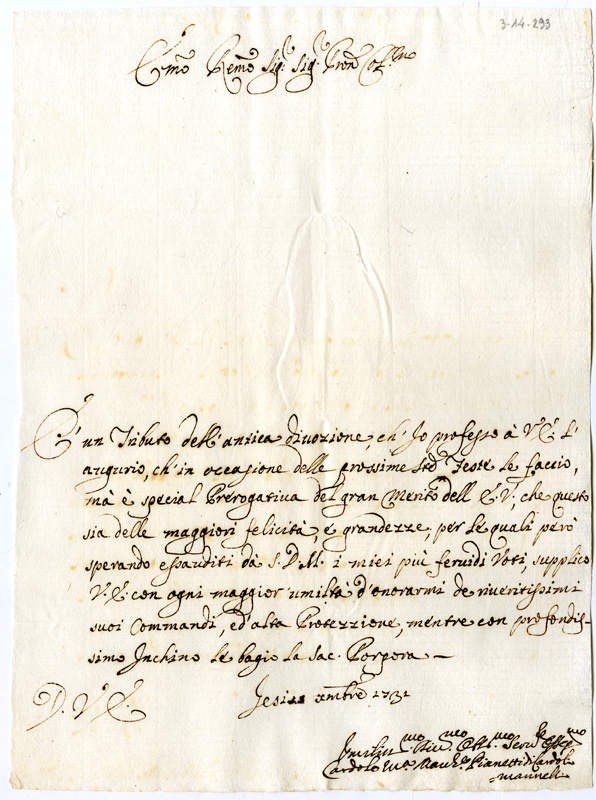 3-14-293
Emo Remo Sig.r Sig.r Pron Col.mo
È un Tributo dell'antica divozione, ch'Io professo à V.E. l'
augurio, ch'in occasione delle prossime Ste Feste le faccio,
mà è special Prerogativa del gran Merito dell'E.V., che questo
sia delle maggiori felicità, e grandezze, per le quali però
sperando essauditi dà S.D.M. i miei più fervidi Voti, supplico
V.E. con ogni maggior umiltà d'onorarmi de riveritissimi
suoi Commandi, ed'alta Protezzione, mentre con profondis-
simo Inchino le bagio la Sac. Porpora
Jesi xmbre 1731
D. V. E.
Umiliss.mo Div.mo Obb.mo Serv.re
Cardolo M.a Pianetti di Cardol